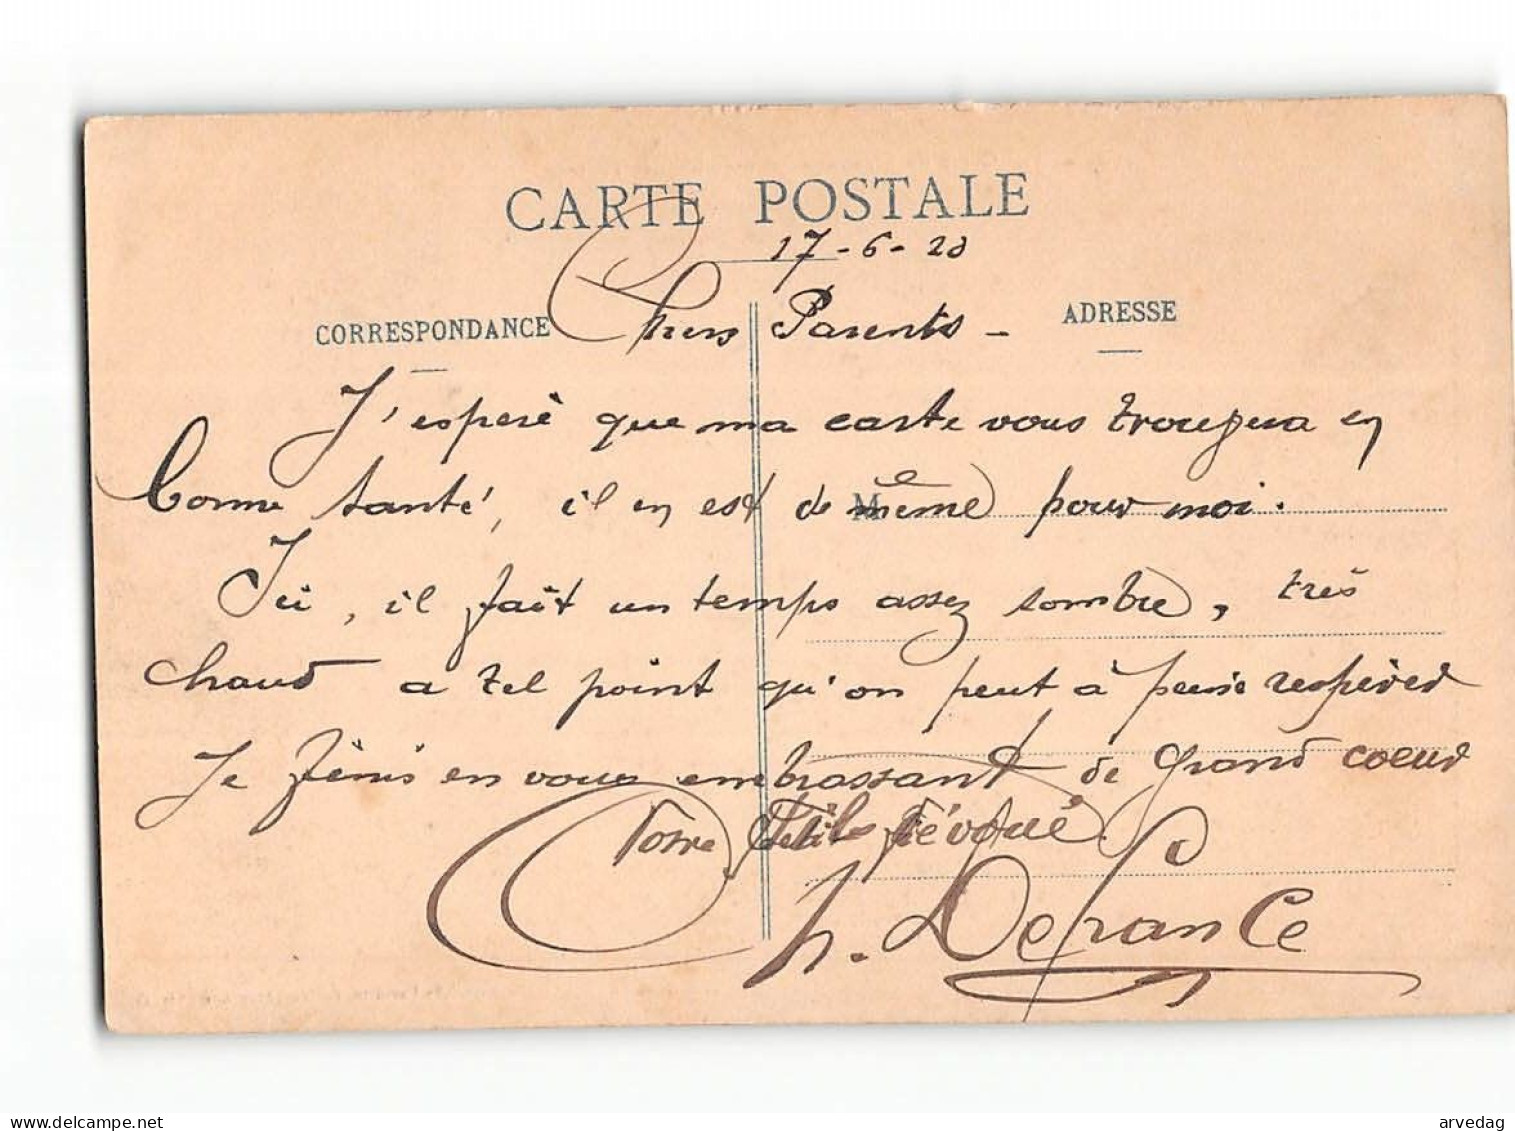 CARTE POSTALE
17-6-20
CORRESPONDANCE
ADRESSE
Chers Parents -
J'esperè que ma carte vous trouvera en
bonne santé, il en est de même pour moi.
M
Ici, il fait un temps assez sombre, très
chaud a tel point qu'on peut à peine respirer
Je finis en vous embrassant de grand coeur
Votre fils dévoué
Ch. Defrance
delcampe.net
arvedag